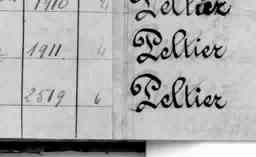 1910 4 Peltier
1911 4 Peltier
2519 6 Peltier